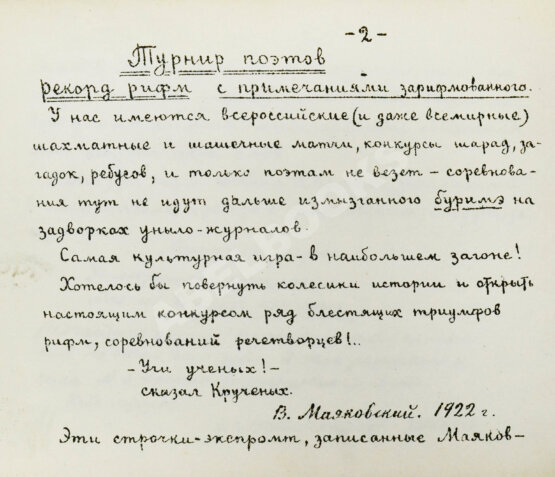 -2-
Турнир поэтов
рекорд рифм с примечаниями зарифмованного.
У нас имеются всероссийские (и даже всемирные)
шахматные и шашечные матчи, конкурсы шарад, за-
гадок, ребусов, и только поэтам не везет - соревнова-
ния тут не идут дальше измызганного буримэ на
задворках уныло-журналов.
Самая культурная игра - в наибольшем загоне!
Хотелось бы повернуть колесики истории и открыть
настоящим конкурсом ряд блестящих триумфов
рифм, соревнований речетворцев!..
- Учи ученых! -
сказал Крученых.
В. Маяковский. 1922 г.
Эти строчки-экспромт, записанные Маяков-